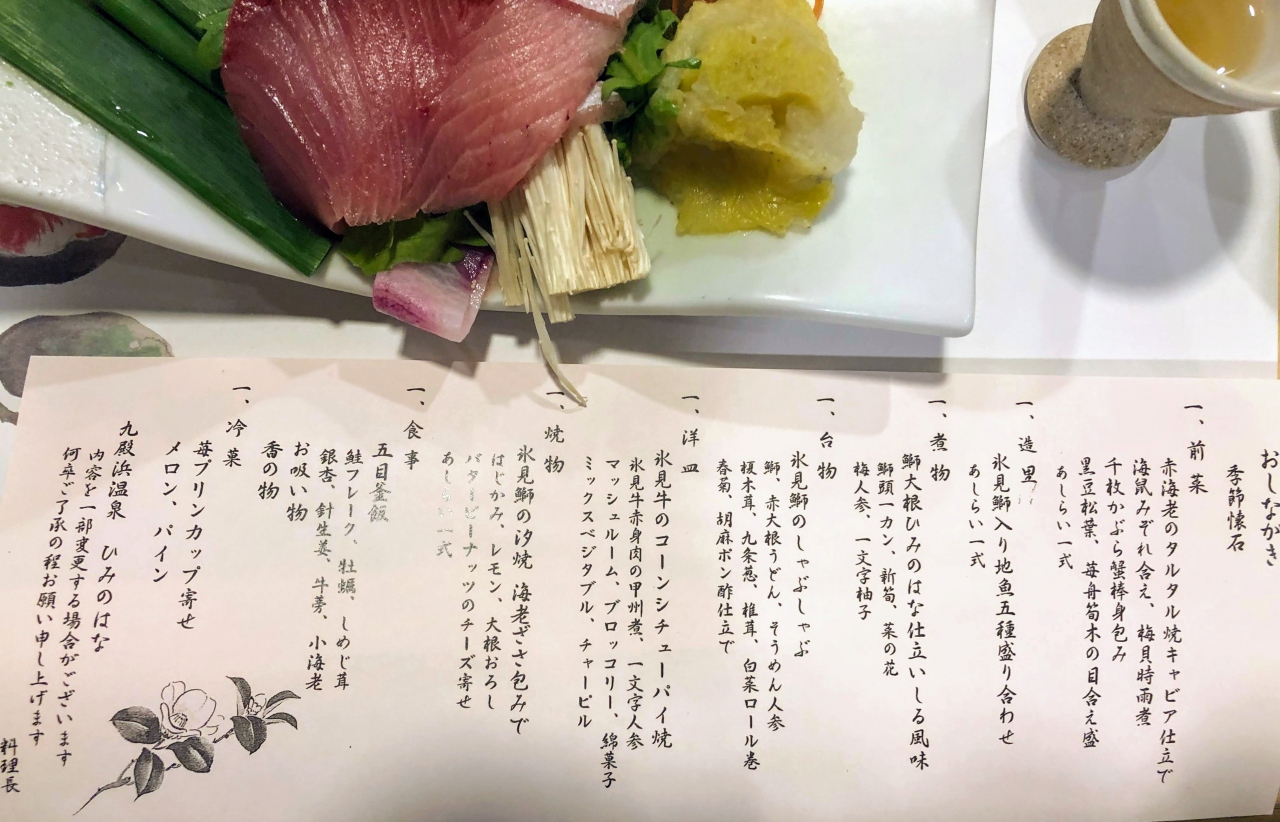 おしながき
季節懐石
一、前菜
赤海老のタルタル焼キャビア仕立で
海鼠みぞれ合え、梅貝時雨煮
千枚かぶら蟹棒身包み
黒豆松葉、苺舟筍木の目合え盛
あしらい一式
一、造里
氷見鰤入り地魚五種盛り合わせ
あしらい一式
一、煮物
鰤大根ひみのはな仕立いしる風味
鰤頭一カン、新筍、菜の花
梅人参、一文字柚子
一、台物
氷見鰤のしゃぶしゃぶ
鰤、赤大根うどん、そうめん人参
榎木茸、九条葱、椎茸、白菜ロール巻
春菊、胡麻ポン酢仕立で
一、洋皿
氷見牛のコーンシチューパイ焼
氷見牛赤身肉の甲州煮、一文字人参
マッシュルーム、ブロッコリー、綿菓子
ミックスベジタブル、チャービル
一、焼物
氷見鰤の汐焼 海老ざさ包みで
はじかみ、レモン、大根おろし
バターピーナッツのチーズ寄せ
あしらい一式
一、食事
五目釜飯
鮭フレーク、牡蠣、しめじ茸
銀杏、針生姜、牛蒡、小海老
お吸い物
香の物
一、冷菓
苺プリンカップ寄せ
メロン、パイン
九殿浜温泉 ひみのはな
内容を一部変更する場合がございます
何卒ご了承の程お願い申し上げます
料理長